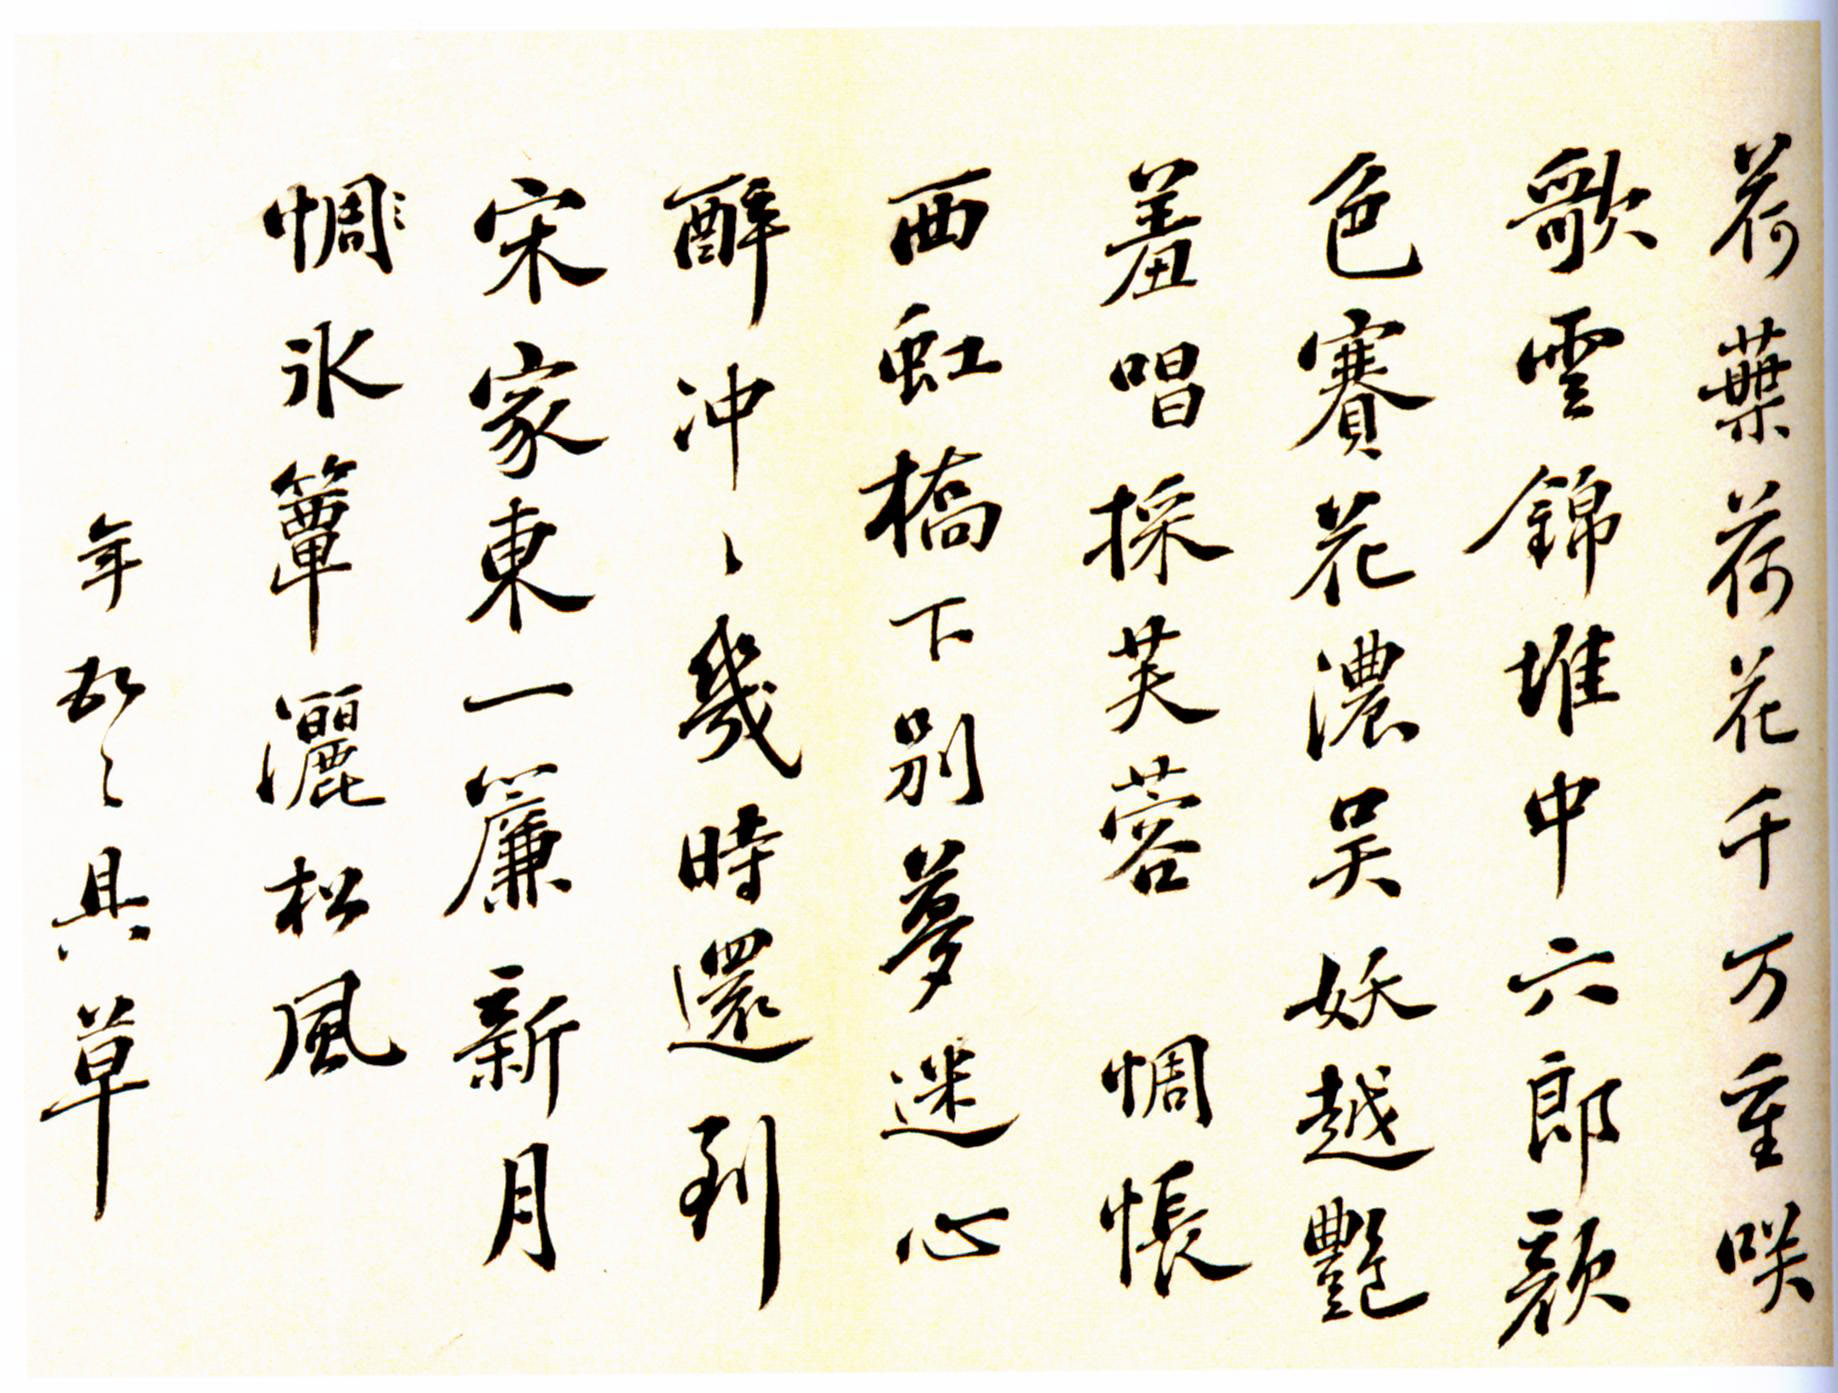 荷葉荷花千万重咲
歌雲錦堆中六郎顏
色賽花濃吴妖越艷
羞唱採芙蓉 惆悵
西虹橋下別夢迷心
醉冲〻幾時還到
宋家東一簾新月
惆〻氷簟灑松風
年弘〻具草